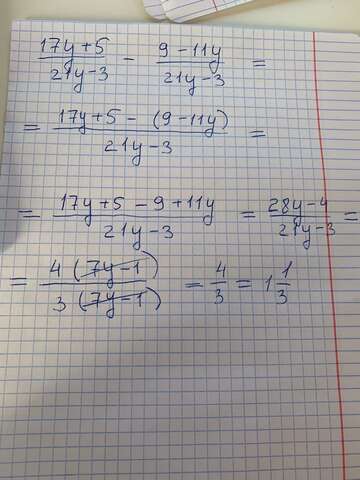 (17y+5)/(21y-3) - (9-11y)/(21y-3) =
= (17y+5-(9-11y))/(21y-3) =
= (17y+5-9+11y)/(21y-3) = (28y-4)/(21y-3) =
= (4(7y-1))/(3(7y-1)) = 4/3 = 1 1/3